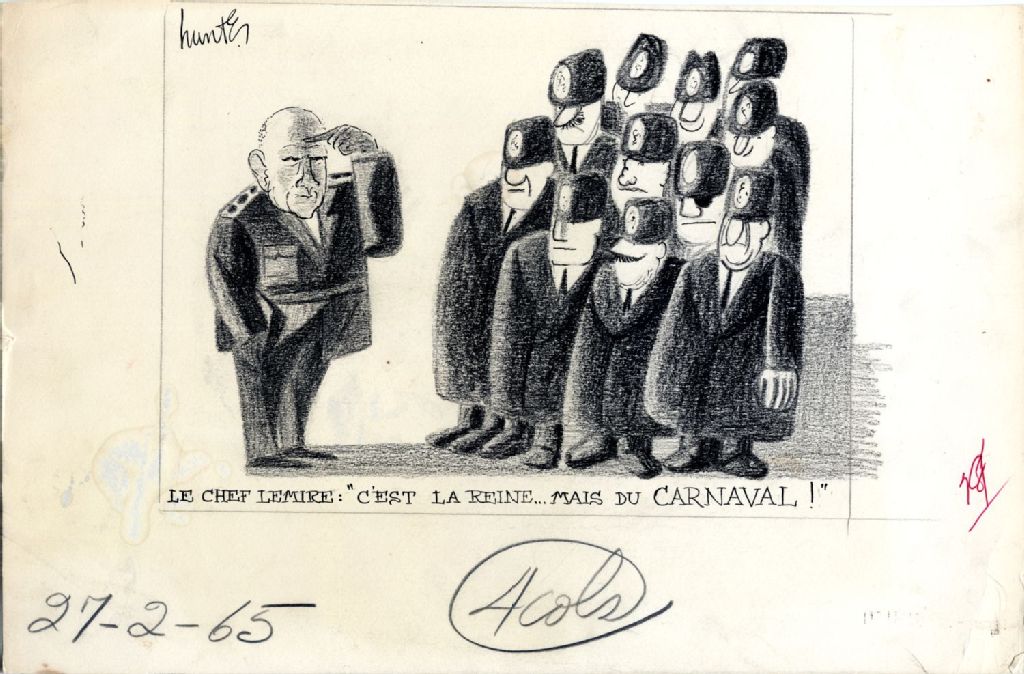 hunter
LE CHEF LEMIRE: "C'EST LA REINE... MAIS DU CARNAVAL!"
4 cols
27-2-65